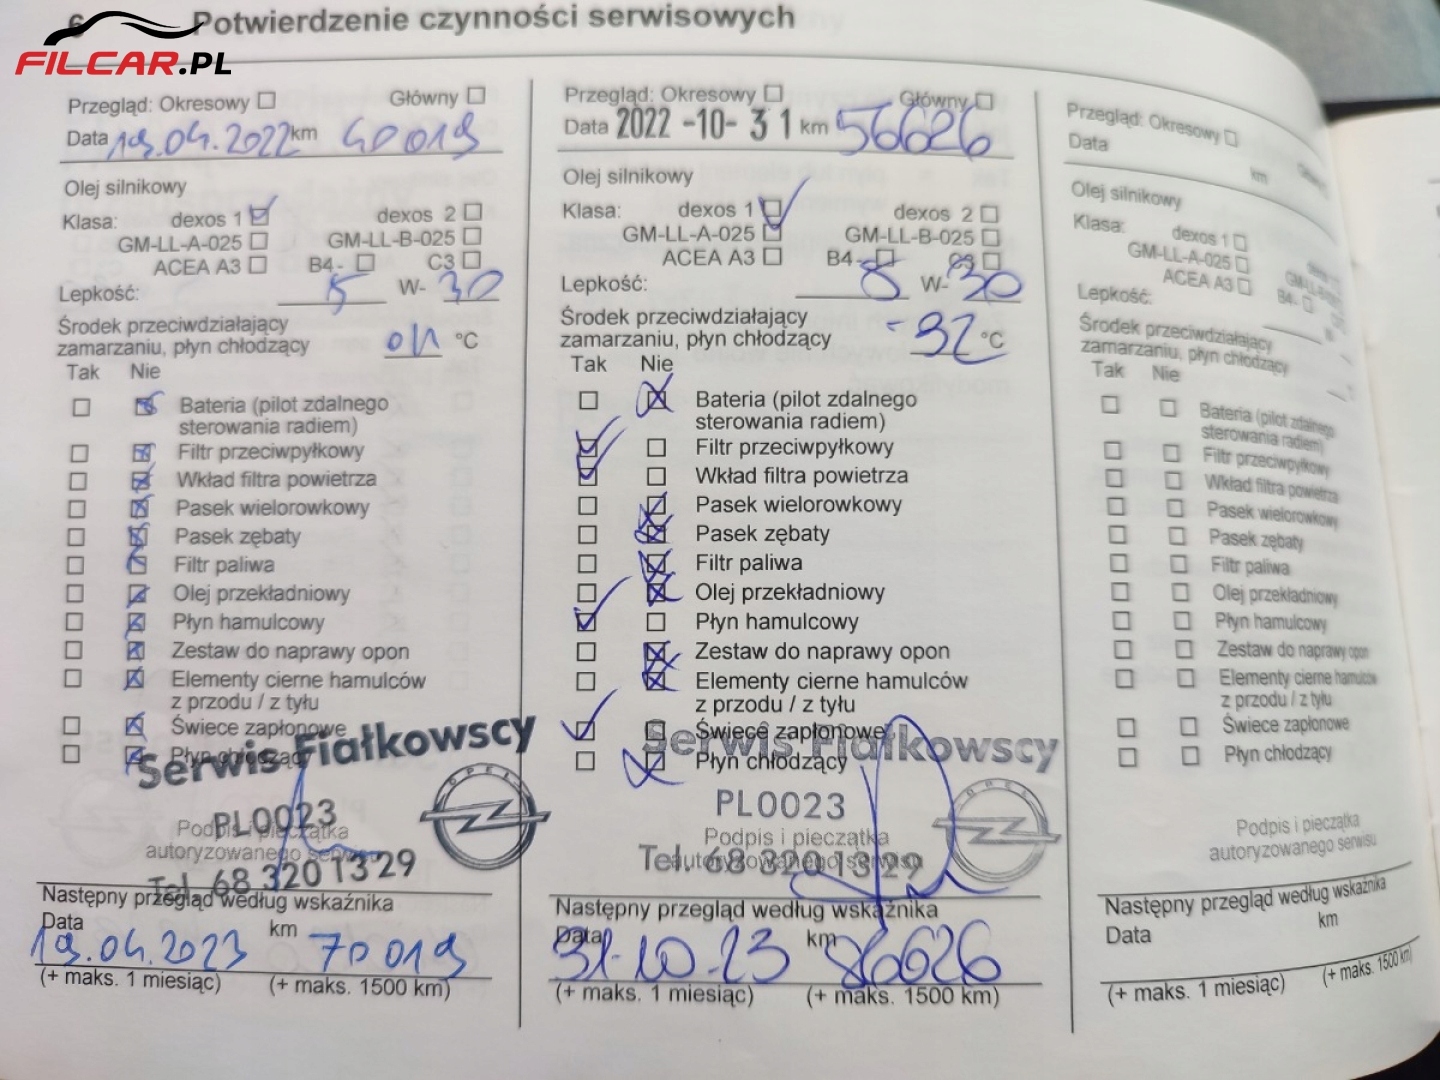 6 Potwierdzenie czynności serwisowych
FILCAR.PL
Przegląd: Okresowy Główny
Data 19.04.2022 km 40019
Olej silnikowy
Klasa: dexos 1 dexos 2
GM-LL-A-025 GM-LL-B-025
ACEA A3 B4- C3
Lepkość: 5 W- 30
Środek przeciwdziałający
zamarzaniu, płyn chłodzący °C
Tak Nie
Bateria (pilot zdalnego
sterowania radiem)
Filtr przeciwpyłkowy
Wkład filtra powietrza
Pasek wielorowkowy
Pasek zębaty
Filtr paliwa
Olej przekładniowy
Płyn hamulcowy
Zestaw do naprawy opon
Elementy cierne hamulców
z przodu / z tyłu
Świece zapłonowe
Płyn chłodzący
Serwis Fiałkowscy
OPEL
PL0023
Podpis i pieczątka
autoryzowanego serwisu
Tel. 68 320 13 29
Następny przegląd według wskaźnika
Data km
19.04.2023 70019
(+ maks. 1 miesiąc) (+ maks. 1500 km)
Przegląd: Okresowy Główny
Data 2022-10-31 km 56626
Olej silnikowy
Klasa: dexos 1 dexos 2
GM-LL-A-025 GM-LL-B-025
ACEA A3 B4- C3
Lepkość: 5 W- 30
Środek przeciwdziałający
zamarzaniu, płyn chłodzący -32 °C
Tak Nie
Bateria (pilot zdalnego
sterowania radiem)
Filtr przeciwpyłkowy
Wkład filtra powietrza
Pasek wielorowkowy
Pasek zębaty
Filtr paliwa
Olej przekładniowy
Płyn hamulcowy
Zestaw do naprawy opon
Elementy cierne hamulców
z przodu / z tyłu
Świece zapłonowe
Płyn chłodzący
Serwis Fiałkowscy
OPEL
PL0023
Podpis i pieczątka
autoryzowanego serwisu
Tel. 68 320 13 29
Następny przegląd według wskaźnika
Data km
31.10.23 86626
(+ maks. 1 miesiąc) (+ maks. 1500 km)
Przegląd: Okresowy Główny
Data km
Olej silnikowy
Klasa: dexos 1
GM-LL-A-025
ACEA A3 B4-
Lepkość:
Środek przeciwdziałający
zamarzaniu, płyn chłodzący
Tak Nie
Bateria (pilot zdalnego
sterowania radiem)
Filtr przeciwpyłkowy
Wkład filtra powietrza
Pasek wielorowkowy
Pasek zębaty
Filtr paliwa
Olej przekładniowy
Płyn hamulcowy
Zestaw do naprawy opon
Elementy cierne hamulców
z przodu / z tyłu
Świece zapłonowe
Płyn chłodzący
Podpis i pieczątka
autoryzowanego serwisu
Następny przegląd według wskaźnika
Data km
(+ maks. 1 miesiąc) (+ maks. 1500 km)